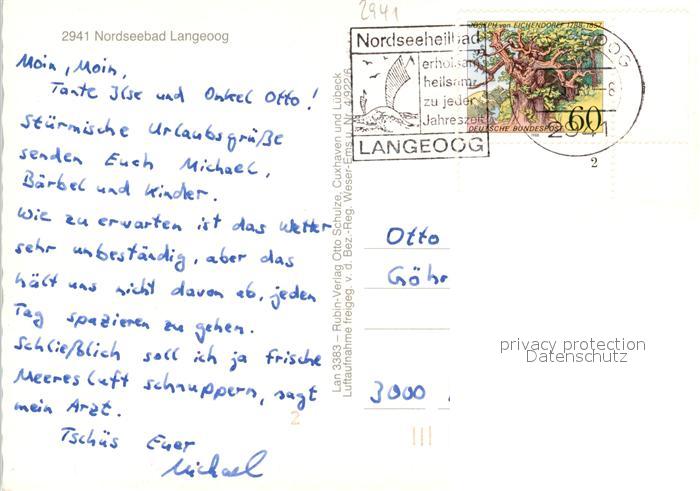 2941
2941 Nordseebad Langeoog
Moin, Moin,
Tante Ilse und Onkel Otto!
Stürmische Urlaubsgrüße
senden Euch Michael,
Bärbel und Kinder.
Wie zu erwarten ist das Wetter
sehr unbeständig, aber das
hält uns nicht davon ab, jeden
Tag spazieren zu gehen.
Schließlich soll ich ja frische
Meeresluft schnuppern, sagt
mein Arzt.
Tschüs Euer
Michael
2
Lan 3383 – Rubin-Verlag Otto Schulze, Cuxhaven und Lübeck
Luftaufnahme freigeg. v. d. Bez.-Reg. Weser-Ems u. Nr. 4/922/6
Nordseeheilbad
erholsam
heilsam
zu jeder
Jahreszeit
LANGEOOG
JOSEPH von EICHENDORFF 1788-1857
DEUTSCHE BUNDESPOST
60
OOG
2941
2
Otto
Göhr
3000
privacy protection
Datenschutz